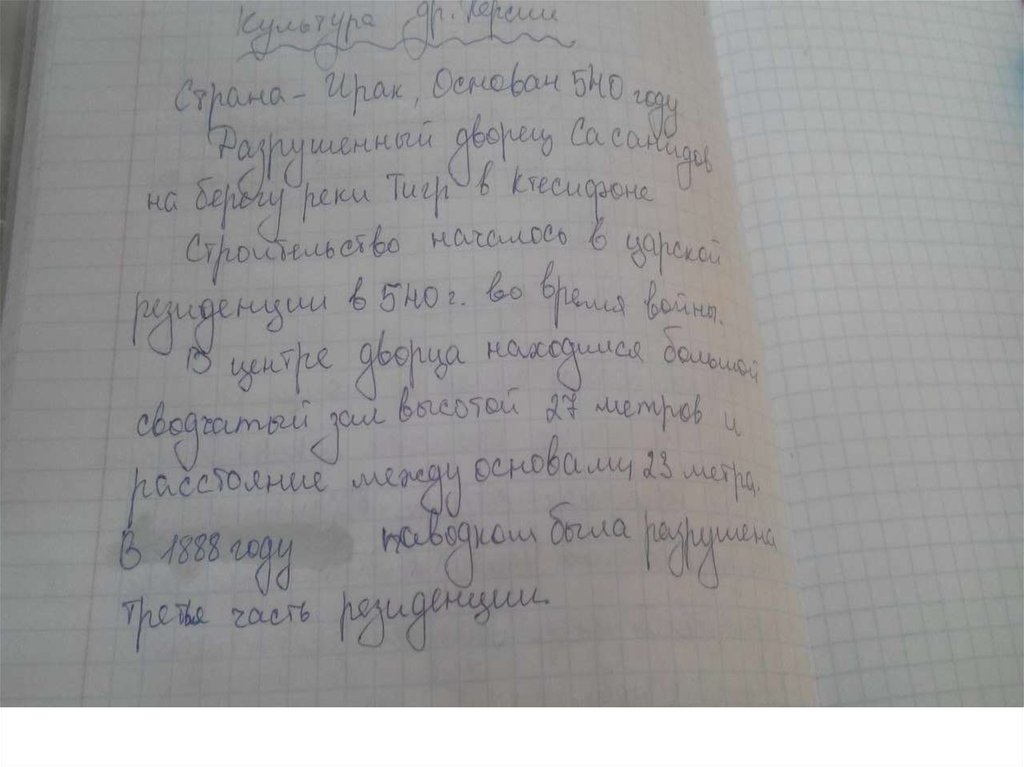 Культура др. Персии
Страна – Ирак, Основан 540 году
Разрушенный дворец Сасанидов
на берегу реки Тигр в Ктесифоне
Строительство началось в царской
резиденции в 540 г. во время войны.
В центре дворца находился большой
сводчатый зал высотой 27 метров и
расстояние между основами 23 метра.
В 1888 году паводком была разрушена
третья часть резиденции.